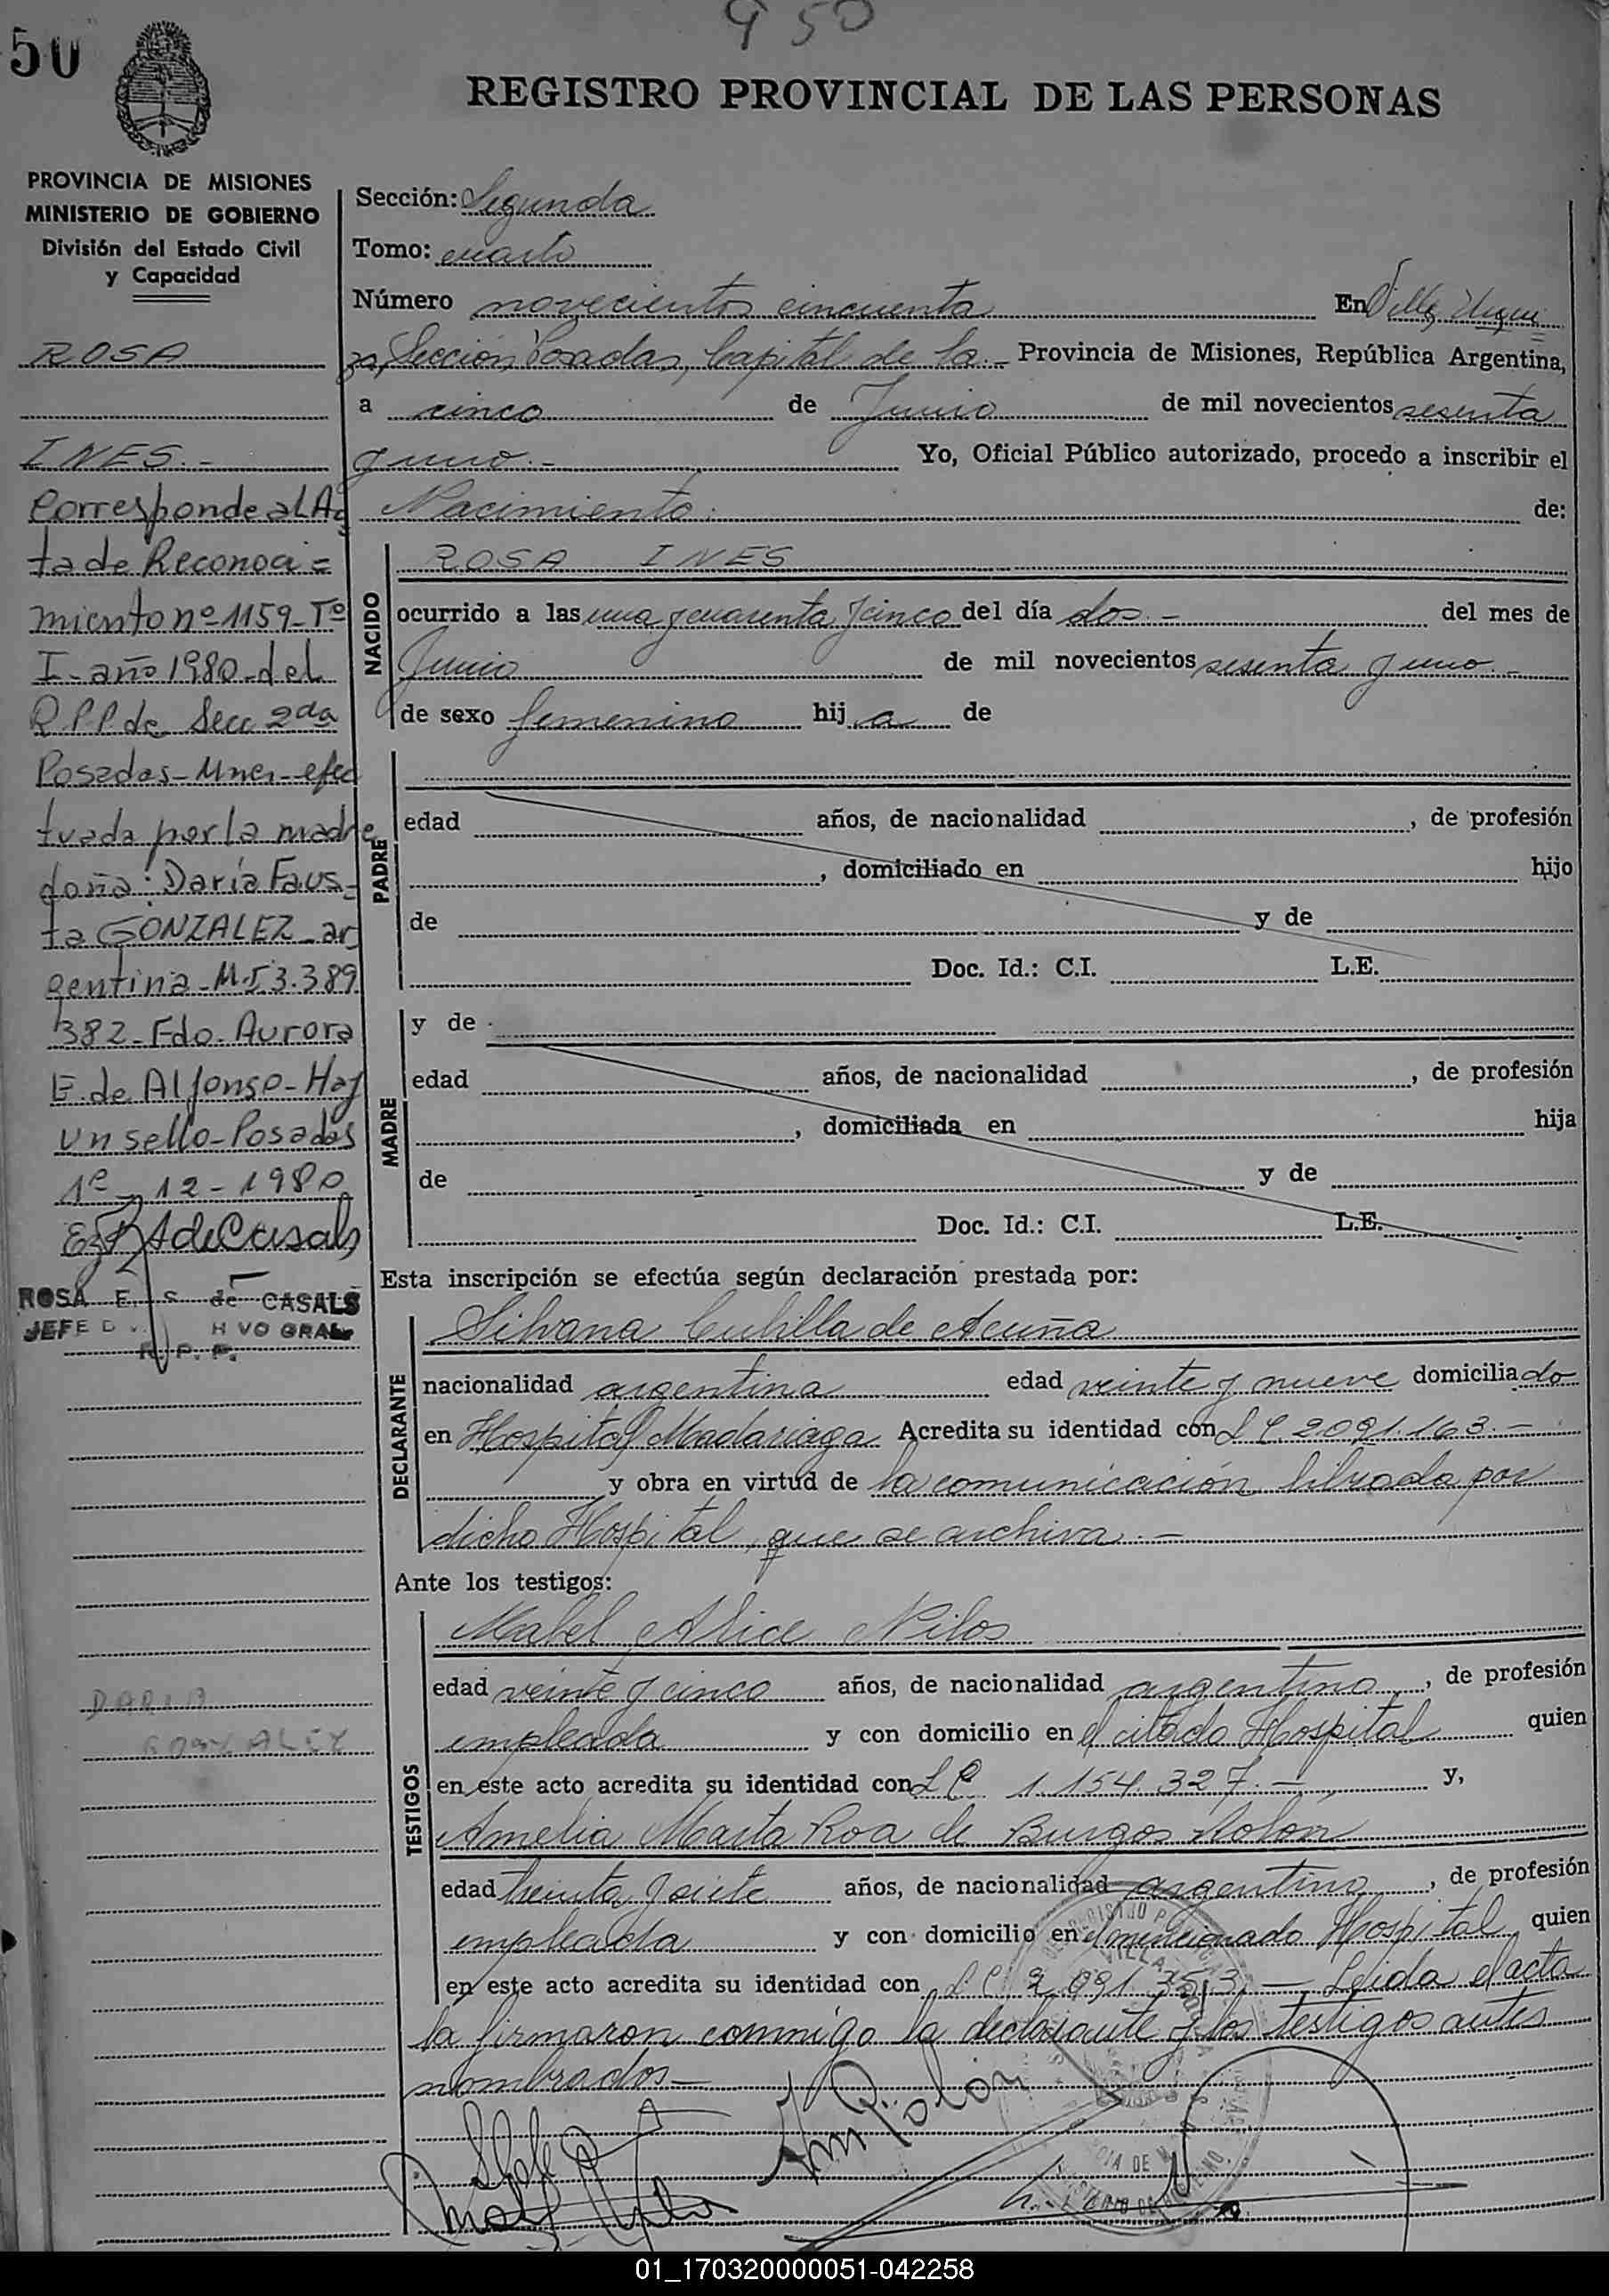 950
50
REGISTRO PROVINCIAL DE LAS PERSONAS
PROVINCIA DE MISIONES
MINISTERIO DE GOBIERNO
División del Estado Civil
y Capacidad
ROSA
INES.-
Corresponde al Ac
ta de Reconoci=
miento nº 1159-Tº
I-año 1980-del
R.P.P. de Secc 2da
Posadas-Mnes-efec
tuada por la madre
doña: Daría Faus-
ta GONZALEZ-ar
gentina-M.I 3.389
382-Fdo. Aurora
E. de Alfonso-Hay
un sello-Posadas
1º-12-1980
ROSA E. S. de CASALS
JEFE
GRAL
R. P. P.
DARIA
GONZALEZ
Sección: Segunda
Tomo: cuarto
Número novecientos cincuenta En Villa Urqui
za, Sección Posadas, Capital de la.- Provincia de Misiones, República Argentina,
a cinco de Junio de mil novecientos sesenta
y uno.- Yo, Oficial Público autorizado, procedo a inscribir el
Nacimiento de:
NACIDO
ROSA INES
ocurrido a las una y cuarenta y cinco del día dos.- del mes de
Junio de mil novecientos sesenta y uno.-
de sexo femenino hija de
PADRE
edad años, de nacionalidad , de profesión
, domiciliado en hijo
de y de
Doc. Id.: C.I. L.E.
MADRE
y de
edad años, de nacionalidad , de profesión
, domiciliada en hija
de y de
Doc. Id.: C.I. L.E.
Esta inscripción se efectúa según declaración prestada por:
DECLARANTE
Silvana Cubilla de Acuña
nacionalidad argentina edad veinte y nueve domiciliado
en Hospital Madariaga Acredita su identidad con L C. 2091.163.-
y obra en virtud de la comunicación librada por
dicho Hospital, que se archiva.-
Ante los testigos:
TESTIGOS
Mabel Alice Nilos
edad veinte y cinco años, de nacionalidad argentina, de profesión
empleada y con domicilio en el citado Hospital quien
en este acto acredita su identidad con L C 1.154.327.- y,
Amelia Marta Roa de Burgos Rolón
edad treinta y siete años, de nacionalidad argentina, de profesión
empleada y con domicilio en el mencionado Hospital quien
en este acto acredita su identidad con L C 2.091.353.- Leida el acta
la firmaron conmigo la declarante y los testigos antes
nombrados.-
01_170320000051-042258